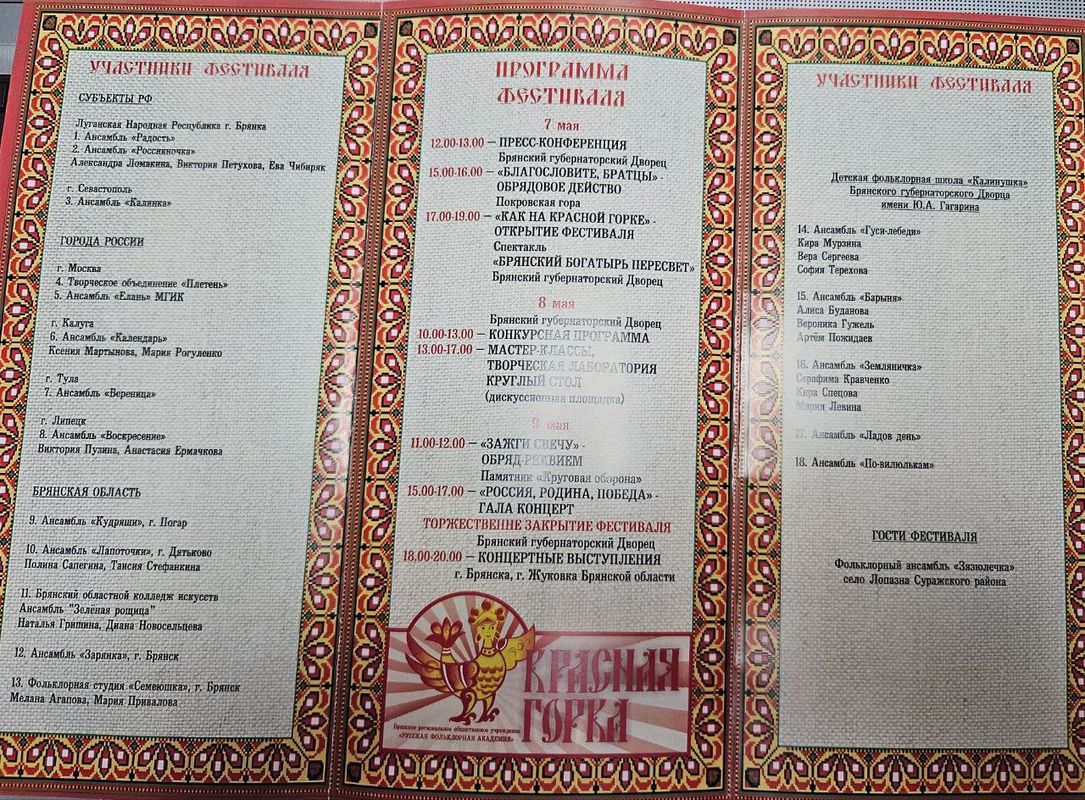 УЧАСТНИКИ ФЕСТИВАЛЯ
СУБЪЕКТЫ РФ
Луганская Народная Республика г. Брянка
1. Ансамбль «Радость»
2. Ансамбль «Россияночка»
Александра Ломакина, Виктория Петухова, Ева Чибиряк
г. Севастополь
3. Ансамбль «Калинка»
ГОРОДА РОССИИ
г. Москва
4. Творческое объединение «Плетень»
5. Ансамбль «Елань» МГИК
г. Калуга
6. Ансамбль «Календарь»
Ксения Мартынова, Мария Рогуленко
г. Тула
7. Ансамбль «Вереница»
г. Липецк
8. Ансамбль «Воскресение»
Виктория Пузина, Анастасия Ермачкова
БРЯНСКАЯ ОБЛАСТЬ
9. Ансамбль «Кудряши», г. Погар
10. Ансамбль «Лапоточки», г. Дятьково
Полина Сапегина, Таисия Стефанкина
11. Брянский областной колледж искусств
Ансамбль "Зелёная рощица"
Наталья Гришина, Диана Новосельцева
12. Ансамбль «Зарянка», г. Брянск
13. Фольклорная студия «Семеюшка», г. Брянск
Мелана Агапова, Мария Привалова
ПРОГРАММА
ФЕСТИВАЛЯ
7 мая
12.00-13.00 – ПРЕСС-КОНФЕРЕНЦИЯ
Брянский губернаторский Дворец
15.00-16.00 – «БЛАГОСЛОВИТЕ, БРАТЦЫ» -
ОБРЯДОВОЕ ДЕЙСТВО
Покровская гора
17.00-19.00 – «КАК НА КРАСНОЙ ГОРКЕ» -
ОТКРЫТИЕ ФЕСТИВАЛЯ
Спектакль
«БРЯНСКИЙ БОГАТЫРЬ ПЕРЕСВЕТ»
Брянский губернаторский Дворец
8 мая
Брянский губернаторский Дворец
10.00-13.00 – КОНКУРСНАЯ ПРОГРАММА
13.00-17.00 – МАСТЕР-КЛАССЫ,
ТВОРЧЕСКАЯ ЛАБОРАТОРИЯ
КРУГЛЫЙ СТОЛ
(дискуссионная площадка)
9 мая
11.00-12.00 – «ЗАЖГИ СВЕЧУ» -
ОБРЯД-РЕКВИЕМ
Памятник «Круговая оборона»
15.00-17.00 – «РОССИЯ, РОДИНА, ПОБЕДА» -
ГАЛА КОНЦЕРТ
ТОРЖЕСТВЕННЕ ЗАКРЫТИЕ ФЕСТИВАЛЯ
Брянский губернаторский Дворец
18.00-20.00 – КОНЦЕРТНЫЕ ВЫСТУПЛЕНИЯ
г. Брянска, г. Жуковка Брянской области
КРАСНАЯ
ГОРКА
Брянское региональное общественное учреждение
«РУССКАЯ ФОЛЬКЛОРНАЯ АКАДЕМИЯ»
УЧАСТНИКИ ФЕСТИВАЛЯ
Детская фольклорная школа «Калинушка»
Брянского губернаторского Дворца
имени Ю.А. Гагарина
14. Ансамбль «Гуси-лебеди»
Кира Мурзина
Вера Сергеева
София Терехова
15. Ансамбль «Барыня»
Алиса Буданова
Вероника Гужель
Артём Пожидаев
16. Ансамбль «Земляничка»
Серафима Кравченко
Кира Спецова
Мария Левина
17. Ансамбль «Ладов день»
18. Ансамбль «По-вилюлькам»
ГОСТИ ФЕСТИВАЛЯ
Фольклорный ансамбль «Зязюлечка»
село Лопазна Суражского района